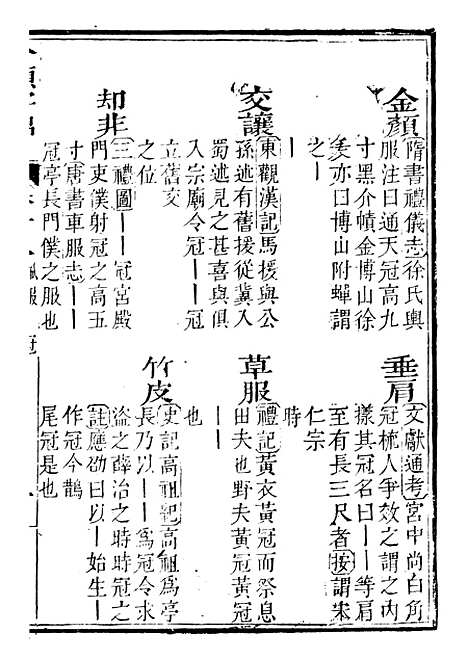 金顏
隋書禮儀志徐氏輿
服注曰通天冠高九
寸黑介幘金博山徐
爰亦曰博山附蟬謂
之丨丨
垂肩
文獻通考宮中尚白角
冠梳人爭效之謂之内
樣其冠名曰丨丨等肩
至有長三尺者按謂宋
仁宗
時
交讓
東觀漢記馬援與公
孫述有舊援從冀入
蜀述見之甚喜與俱
入宗廟令冠丨丨冠
立舊交
之位
草服
禮記黃衣黃冠而祭息
田夫也野夫黃冠黃冠
丨丨
也
却非
三禮圖丨丨冠宮殿
門吏僕射冠之高五
寸唐書車服志丨丨
冠亭長門僕之服也
竹皮
史記高祖紀高祖爲亭
長乃以丨丨爲冠令求
盜之薛治之時時冠之
註應劭曰以丨始生丨
作冠今鵲
尾冠是也
服 冠